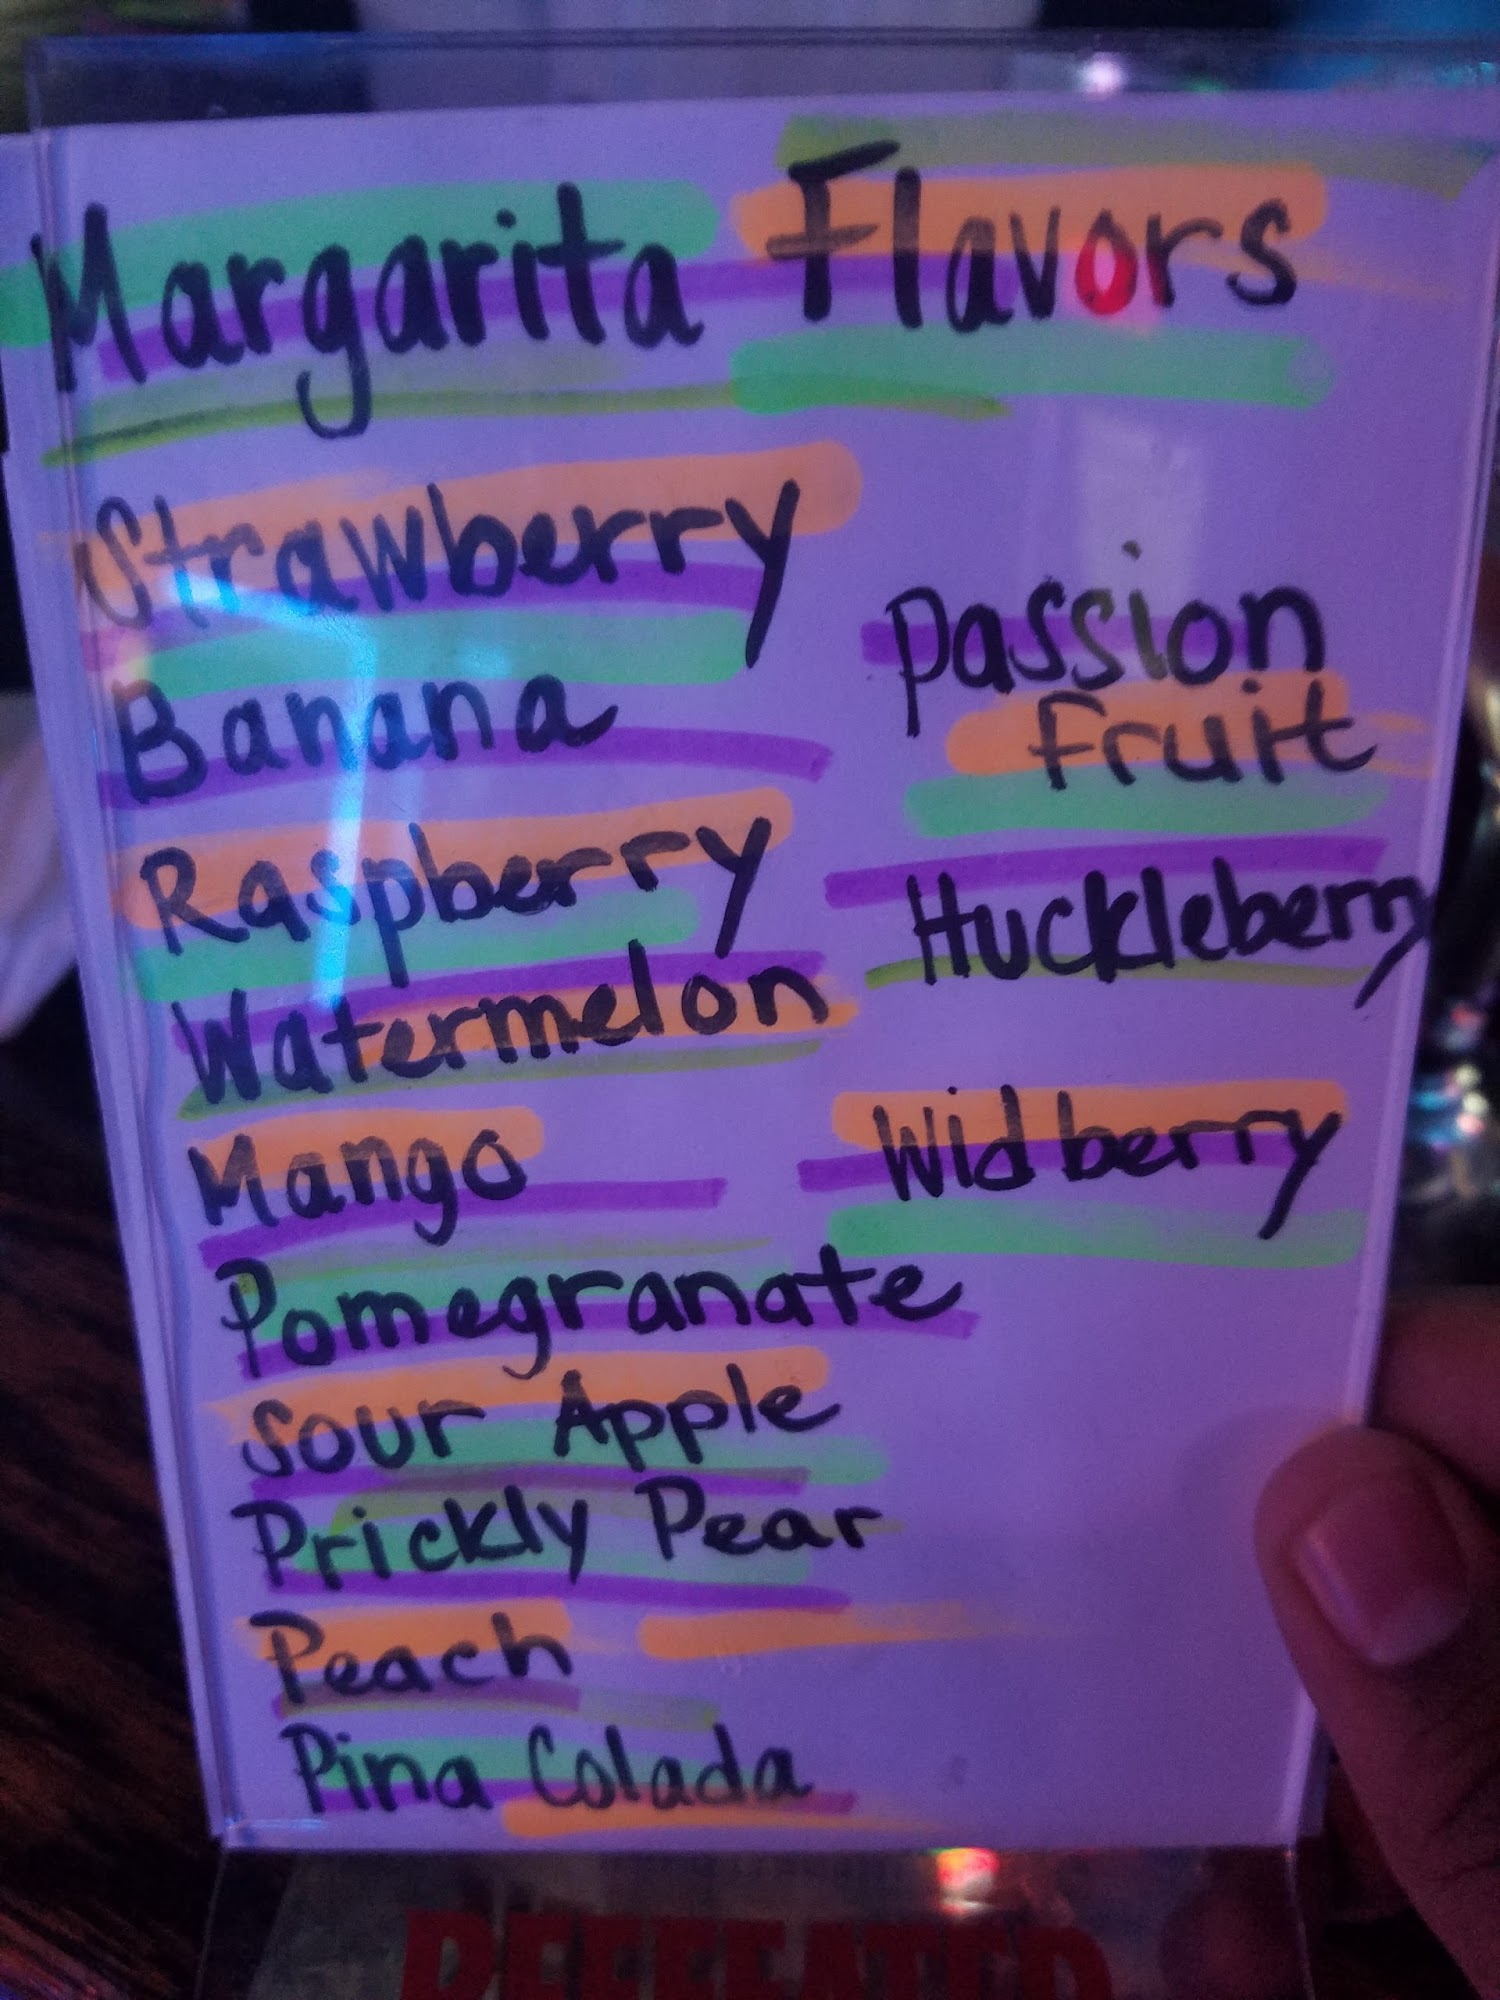 Margarita Flavors
Strawberry
Banana
Raspberry
Watermelon
Mango
Pomegranate
Sour Apple
Prickly Pear
Peach
Pina Colada
Passion
Fruit
Huckleberry
Widberry
DEFEATED